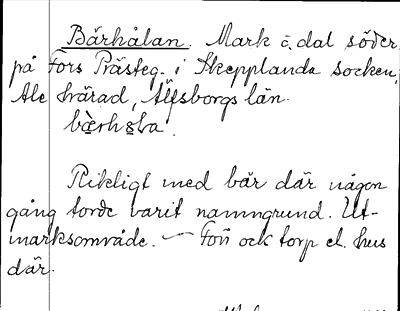 Bärhålan. Mark o. dal söder
på Fors Prästeg. i Skepplanda socken,
Ale härad, Älfsborgs län.

Rikligt med bär där någon
gång torde varit namngrund. Ut-
marksområde. — Förr ock torp el. hus
där.